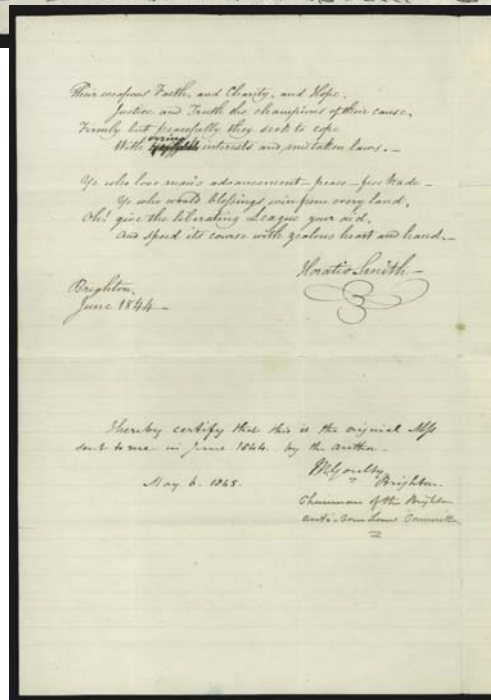 Their weapons Faith, and Charity, and Hope,
Justice and Truth the champions of their cause,
Firmly but peacefully they seek to cope
With erring interests and mistaken laws. —
Ye who love man's advancement — peace — free trade —
Ye who would blessings win from every land,
Oh! give the liberating League your aid,
And speed its course with zealous heart and hand. —
Horatio Smith —
Brighton,
June 1844 —
I hereby certify that this is the original MSS
sent to me in June 1844 by the author —
May 6. 1845.
Brighton.
Chairman of the Brighton
Anti-Corn Law Committee